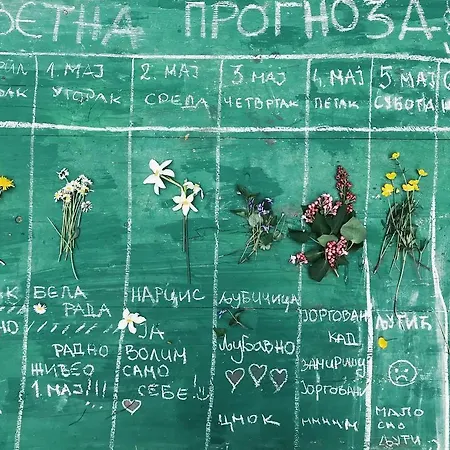 ЦВЕТНА ПРОГНОЗА
1. МАЈ
УТОРАК
2. МАЈ
СРЕДА
3. МАЈ
ЧЕТВРТАК
4. МАЈ
ПЕТАК
5 МАЈ
СУБОТА
БЕЛА
РАДА
РАДНО
ЖИВЕО
1. МАЈ!!!
НАРЦИС
ЈА
ВОЛИМ
САМО
СЕБЕ!
ЉУБИЧИЦА
ЉУБАВНО
ЦМОК
ЈОРГОВАН
КАД
ЗАМИРИШУ
ЈОРГОВАНИ
МАЛО
СМО
ЉУТИ